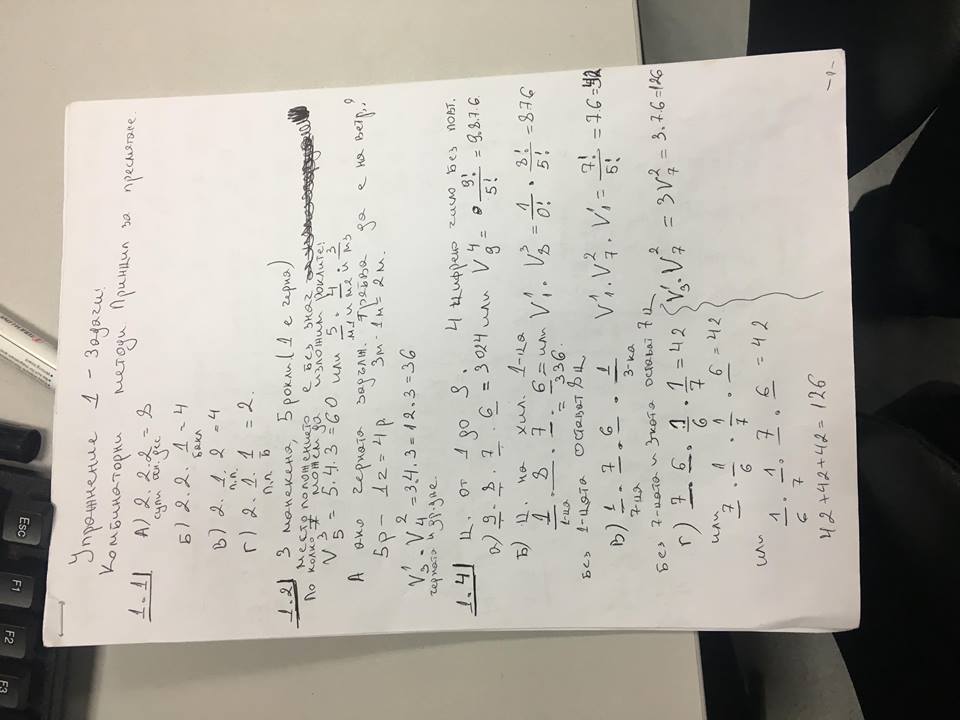 F3
F2
F1
ESC
Упражнение 1 - Задачи!
Комбинаторни методи. Принцип за пресмятане.
1.1 А) 2.2.2 = 8
супи осн. дес
Б) 2.2.1 = 4
бакл
В) 2.1.2 = 4
п.п.
Г) 2.1.1 = 2.
п.п. Б
1.2 3 манекена, 5 рокли (1 е черна)
местоположението е без знач
По колко можем да изложим роклите!
V₅³ = 5.4.3 = 60 или 5/м1 и 4/м2 и 3/м3
А ако черната задълж. трябва да е на витр.?
5р - 1г = 4р. 3м - 1м = 2м.
V₃¹ . V₄² = 3.4.3 = 12.3 = 36
черната и др. две.
1.4 Ц. от 1 до 9. 4 цифрено число без повт.
а) 9 . 8 . 7 . 6 = 3024 или V₉⁴ = 9!/5! = 9.8.7.6.
Б) Ц. на хил. 1-ца
1 . 8 . 7 . 6 = или V₁¹ . V₈³ = 1/0! . 8!/5! = 876
1-ца = 336.
Без 1-цата остават 8ц
В) 1 . 7 . 6 . 1 V₁¹ . V₇² . V₁¹ = 7!/5! = 7.6 = 42
7-ца 3-ка
Без 7-цата и 3ката остават 7ц
Г) 7 . 6 . 1/6 . 1/7 = 42 V₃¹ . V₇² = 3V₇² = 3.7.6 = 126
или 7 . 1/6 . 1/7 . 6 = 42
или 1/6 . 1/7 . 7 . 6 = 42
42 + 42 + 42 = 126
-1-